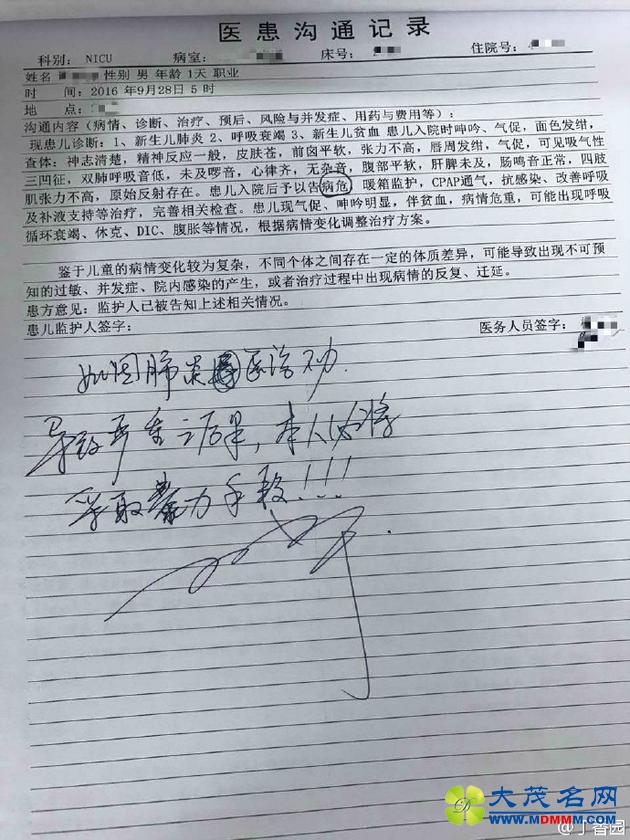 医患沟通记录
科别: NICU 病室: 床号: 住院号:
姓名 性别 男 年龄 1天 职业
时 间: 2016 年9月28日 5 时
地 点:
沟通内容(病情、诊断、治疗、预后、风险与并发症、用药与费用等):
现患儿诊断: 1、新生儿肺炎 2、呼吸衰竭 3、新生儿贫血 患儿入院时呻吟、气促,面色发绀,
查体: 神志清楚,精神反应一般,皮肤苍,前囟平软,张力不高,唇周发绀,气促,可见吸气性
三凹征,双肺呼吸音低,未及啰音,心律齐,无杂音,腹部平软,肝脾未及,肠鸣音正常,四肢
肌张力不高,原始反射存在。患儿入院后予以告病危、暖箱监护,CPAP通气,抗感染、改善呼吸
及补液支持等治疗,完善相关检查。患儿现气促、呻吟明显,伴贫血,病情危重,可能出现呼吸
循环衰竭、休克、DIC、腹胀等情况,根据病情变化调整治疗方案。
鉴于儿童的病情变化较为复杂,不同个体之间存在一定的体质差异,可能导致出现不可预
知的过敏、并发症、院内感染的产生,或者治疗过程中出现病情的反复、迁延。
患方意见: 监护人已被告知上述相关情况。
患儿监护人签字: 医务人员签字:
如因肺炎医治不力
导致严重之后果,本人必将
采取暴力手段!!!
大茂名网
WWW.MDMMM.COM
@丁香园